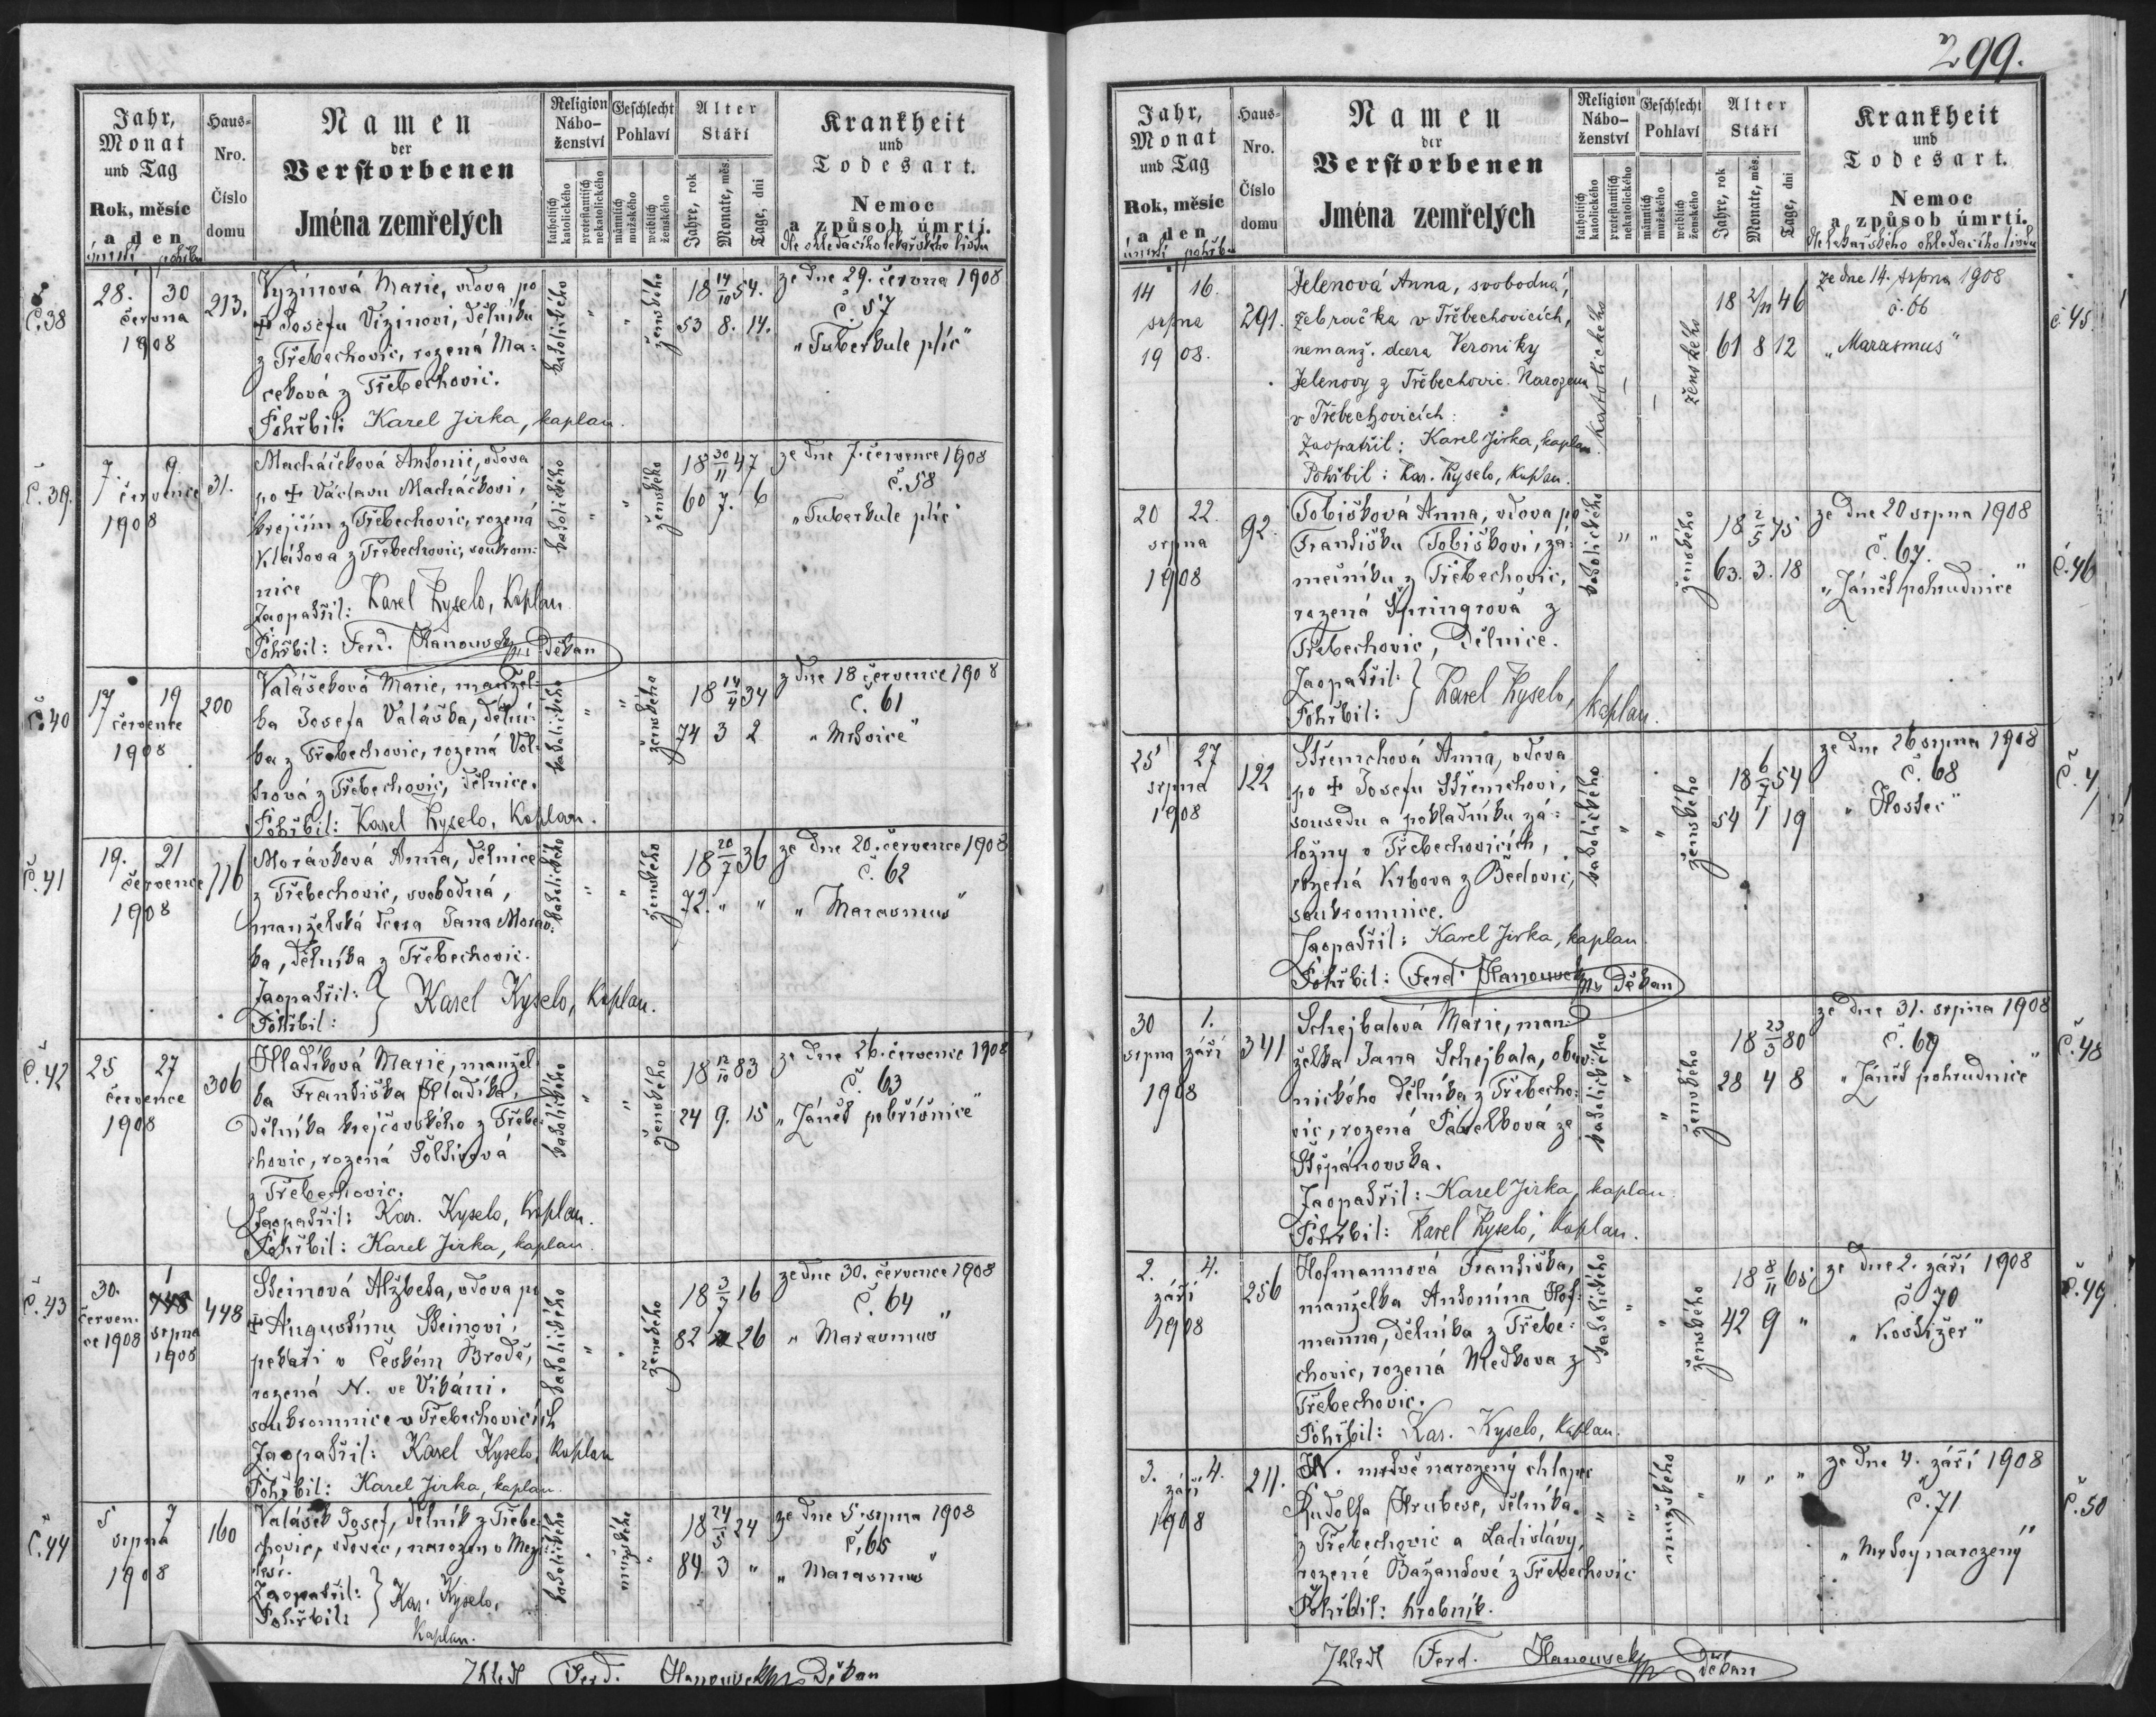 299.
Jahr, Monat und Tag
Rok, měsíc a den
úmrtí pohřbu
Haus-Nro. Číslo domu
Namen der Verstorbenen
Jména zemřelých
Religion Nábo-ženství
katholisch katolického
protestantisch nekatolického
Geschlecht Pohlaví
männlich mužského
weiblich ženského
Alter Stáří
Jahre, rok
Monate, měs.
Tage, dni
Krankheit und Todesart.
Nemoc a způsob úmrtí.
dle ohledacího lékařského listu
č.38
28. 30
června
1908
213.
Vyzinová Marie, vdova po
✝ Josefu Vizinovi, dělníku
z Třebechovic, rozená Ma-
cková z Třebechovic.
Pohřbil: Karel Jirka, kaplan.
katolického " " ženského
18 14/10 54.
53 8. 14.
ze dne 29. června 1908
č. 57
„Tuberkule plic"
č.39.
7. 9.
července
1908
31.
Macháčková Antonie, vdova
po ✝ Václavu Macháčkovi,
krejčím z Třebechovic, rozená
z Třebechovic, soukrom-
nice
Zaopatřil: Karel Kyselo, Kaplan.
Pohřbil: Ferd. Hanousek Děkan
katolického " " ženského
18 30/11 47
60 7. 6
ze dne 7. července 1908
č.58
„Tuberkule plic"
č.40
17 19
července
1908
200
Valášková Marie, manžel-
ka Josefa Valáška, dělní-
ka z Třebechovic, rozená
z Třebechovic, dělnice.
Pohřbil: Karel Kyselo, Kaplan.
katolického " " ženského
18 14/4 34
74 3 2
z dne 18 července 1908
č. 61
„Mrtvice"
č.41
19. 21
července
1908
116
Morávková Anna, dělnice
z Třebechovic, svobodná,
manželská dcera Jana Moráv-
ka, dělníka z Třebechovic.
Zaopatřil:
Pohřbil: } Karel Kyselo, Kaplan.
katolického " " ženského
18 20/7 36
72. " "
ze dne 20. července 1908
č. 62
„Marasmus"
č.42
25 27
července
1908
306
Hladíková Marie, manžel-
ka Františka Hladíka,
dělníka krejčovského z Třebe-
chovic, rozená
z Třebechovic.
Zaopatřil: Kar. Kyselo, Kaplan.
Pohřbil: Karel Jirka, kaplan.
katolického " " ženského
18 12/10 83
24 9. 15
ze dne 26. července 1908
č. 63
„Zánět pobřišnice"
č.43
30. 1
červen-
ce 1908 srpna
1908
448
Steinová Alžběta, vdova po
✝ Augustinu Steinovi,
pekaři v Českém Brodě,
rozená N. ve Vikáni,
soukromnice v Třebechovicích
Zaopatřil: Karel Kyselo, Kaplan
Pohřbil: Karel Jirka, kaplan.
katolického " " ženského
18 3/7 16
82 26
ze dne 30. července 1908
č. 64
„Marasmus"
č.44
5 7
srpna
1908
160
Valášek Josef, dělník z Třebe-
chovic, vdovec, narozen v Mezi-
lesí.
Zaopatřil:
Pohřbil: } Kar. Kyselo,
Kaplan.
katolického " mužského "
18 24/5 24
84. 3 "
ze dne 5. srpna 1908
č. 65
„Marasmus"
Zhlédl Ferd. Hanousek Děkan
Jahr, Monat und Tag
Rok, měsíc a den
úmrtí pohřbu
Haus-Nro. Číslo domu
Namen der Verstorbenen
Jména zemřelých
Religion Nábo-ženství
katholisch katolického
protestantisch nekatolického
Geschlecht Pohlaví
männlich mužského
weiblich ženského
Alter Stáří
Jahre, rok
Monate, měs.
Tage, dni
Krankheit und Todesart.
Nemoc a způsob úmrtí.
dle lékařského ohledacího listu
14 16.
srpna
1908.
291.
Jelenová Anna, svobodná,
žebračka v Třebechovicích,
nemanž. dcera Veroniky
Jelenovy z Třebechovic. Narozena
v Třebechovicích.
Zaopatřil: Karel Jirka, kaplan.
Pohřbil: Kar. Kyselo, kaplan.
katolického ženského
18 2/12 46
61 8 12
ze dne 14. srpna 1908
č. 66
„Marasmus"
č.45.
20 22.
srpna
1908
92.
Tobišková Anna, vdova po
Františku Tobiškovi, zá-
mečníku z Třebechovic,
rozená Špringrová z
Třebechovic, dělnice.
Zaopatřil:
Pohřbil: } Karel Kyselo, kaplan.
katolického " " ženského
18 2/5 45
63. 3. 18
ze dne 20 srpna 1908
č. 67.
„Zánět pohrudnice"
č.46
25 27
srpna
1908
122
Střemchová Anna, vdova
po ✝ Josefu Střemchovi,
sousedu a pokladníku zá-
ložny v Třebechovicích,
rozená Krbova z Bědovic,
soukromnice.
Zaopatřil: Karel Jirka, kaplan.
Pohřbil: Ferd. Hanousek Děkan
katolického " " ženského
18 6/7 54
54 1 19
ze dne 26 srpna 1908
č. 68
„Hostec"
č.4
30 1.
srpna září
1908
341
Schejbalová Marie, man-
želka Jana Schejbala, obuv-
nického dělníka z Třebecho-
vic, rozená Pavelková ze
Štěpánovska.
Zaopatřil: Karel Jirka, kaplan.
Pohřbil: Karel Kyselo, kaplan.
katolického " " ženského
18 23/3 80
28 4 8
ze dne 31. srpna 1908
č. 69
„Zánět pohrudnice"
č.48
2. 4.
září
1908
256
Hofmannová Františka,
manželka Antonína Hof-
manna, dělníka z Třebe-
chovic, rozená Medkova z
Třebechovic.
Pohřbil: Kar. Kyselo, Kaplan.
katolického " " ženského
18 8/11 65
42 9 "
ze dne 2. září 1908
č. 70
„Kostižer"
č.49
3. 4.
září
1908
211.
N. mrtvě narozený chlapec
Rudolfa Hrubese, dělníka
z Třebechovic a Ladislávy,
rozené Bažantové z Třebechovic
Pohřbil: hrobník.
" " mužského "
" " "
ze dne 4. září 1908
č.71
„Mrtvý narozený"
č.50
Zhlédl Ferd. Hanousek Děkan